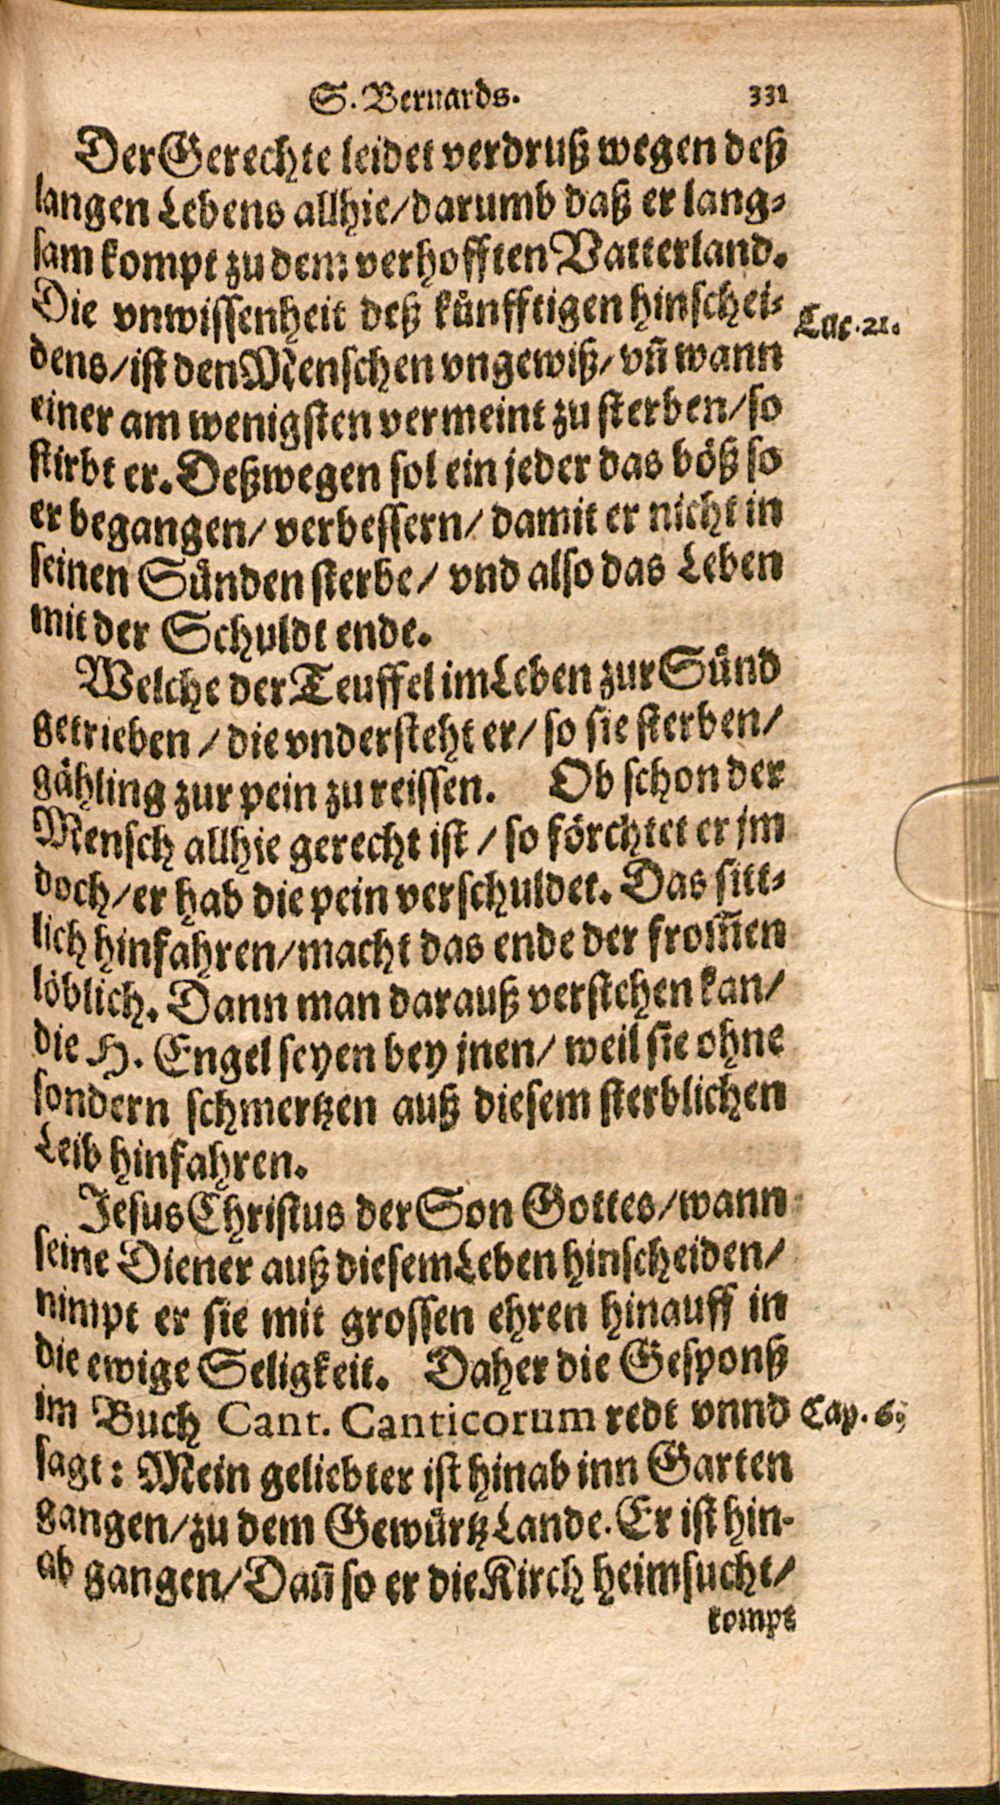 S. Bernards. 331
Der Gerechte leidet verdruß wegen deß
langen Lebens allhie/darumb daß er lang-
sam kompt zu dem verhofften Vatterland.
Die vnwissenheit deß künfftigen hinschei- Luc. 21.
dens/ist den Menschen vngewiß/ vn̄ wann
einer am wenigsten vermeint zu sterben/so
stirbt er. Deßwegen sol ein jeder das böß so
er begangen/ verbessern/ damit er nicht in
seinen Sünden sterbe/ vnd also das Leben
mit der Schuldt ende.
Welche der Teuffel im Leben zur Sünd
getrieben / die vndersteht er/ so sie sterben/
gähling zur pein zu reissen. Ob schon der
Mensch allhie gerecht ist / so förchtet er jm
doch/er hab die pein verschuldet. Das sitt-
lich hinfahren/macht das ende der from̄en
löblich. Dann man darauß verstehen kan/
die H. Engel seyen bey jnen/ weil sie ohne
sondern schmertzen auß diesem sterblichen
Leib hinfahren.
Jesus Christus der Son Gottes/wann
seine Diener auß diesem Leben hinscheiden/
nimpt er sie mit grossen ehren hinauff in
die ewige Seligkeit. Daher die Gesponß
im Buch Cant. Canticorum redt vnnd Cap. 6.
sagt: Mein geliebter ist hinab inn Garten
gangen/zu dem Gewürtz Lande. Er ist hin-
ab gangen/Dan̄ so er die Kirch heimsucht/
kompt